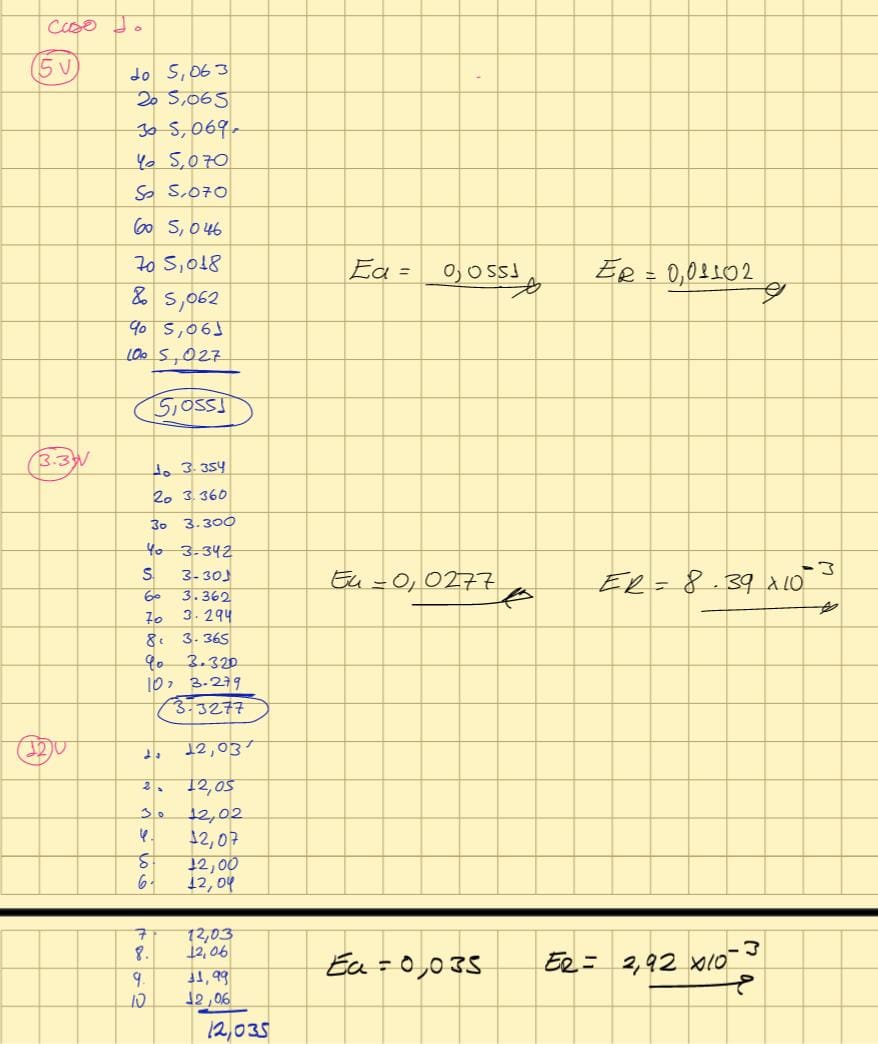 caso 1.
5V
1. 5,063
2. 5,065
3. 5,069.
4. 5,070
5. 5.070
6. 5,046
7. 5,018
8. 5,062
9. 5,061
10. 5,027
5,0551
Ea = 0,0551 ER = 0,01102
3.3V
1. 3.354
2. 3.360
3. 3.300
4. 3.342
5. 3.301
6. 3.362
7. 3.294
8. 3.365
9. 3.320
10. 3.279
3.3277
Ea = 0,0277 ER = 8.39 x10⁻³
12V
1. 12,03
2. 12,05
3. 12,02
4. 12,07
5. 12,00
6. 12,04
7. 12,03
8. 12,06
9. 11,99
10 12,06
12,035
Ea = 0,035 ER = 2,92 x10⁻³